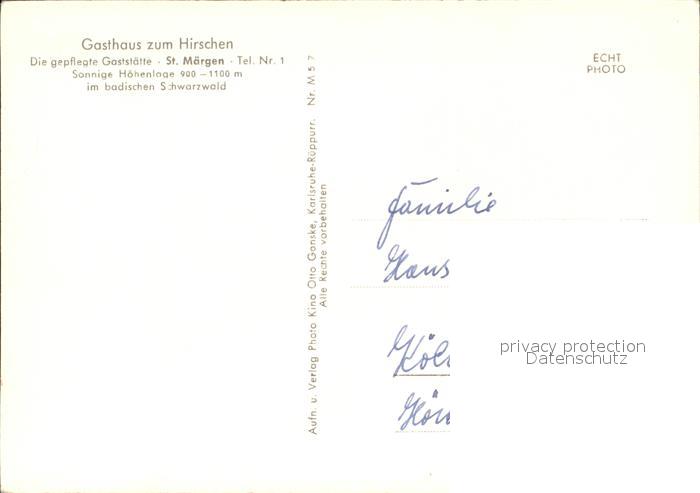 Gasthaus zum Hirschen
Die gepflegte Gaststätte · St. Märgen · Tel. Nr. 1
Sonnige Höhenlage 900 – 1100 m
im badischen Schwarzwald
Aufn. u. Verlag Photo Kino Otto Ganske, Karlsruhe-Rüppurr. Nr. M 5 7
Alle Rechte vorbehalten
ECHT
PHOTO
Familie
Hans
Köl
privacy protection
Datenschutz